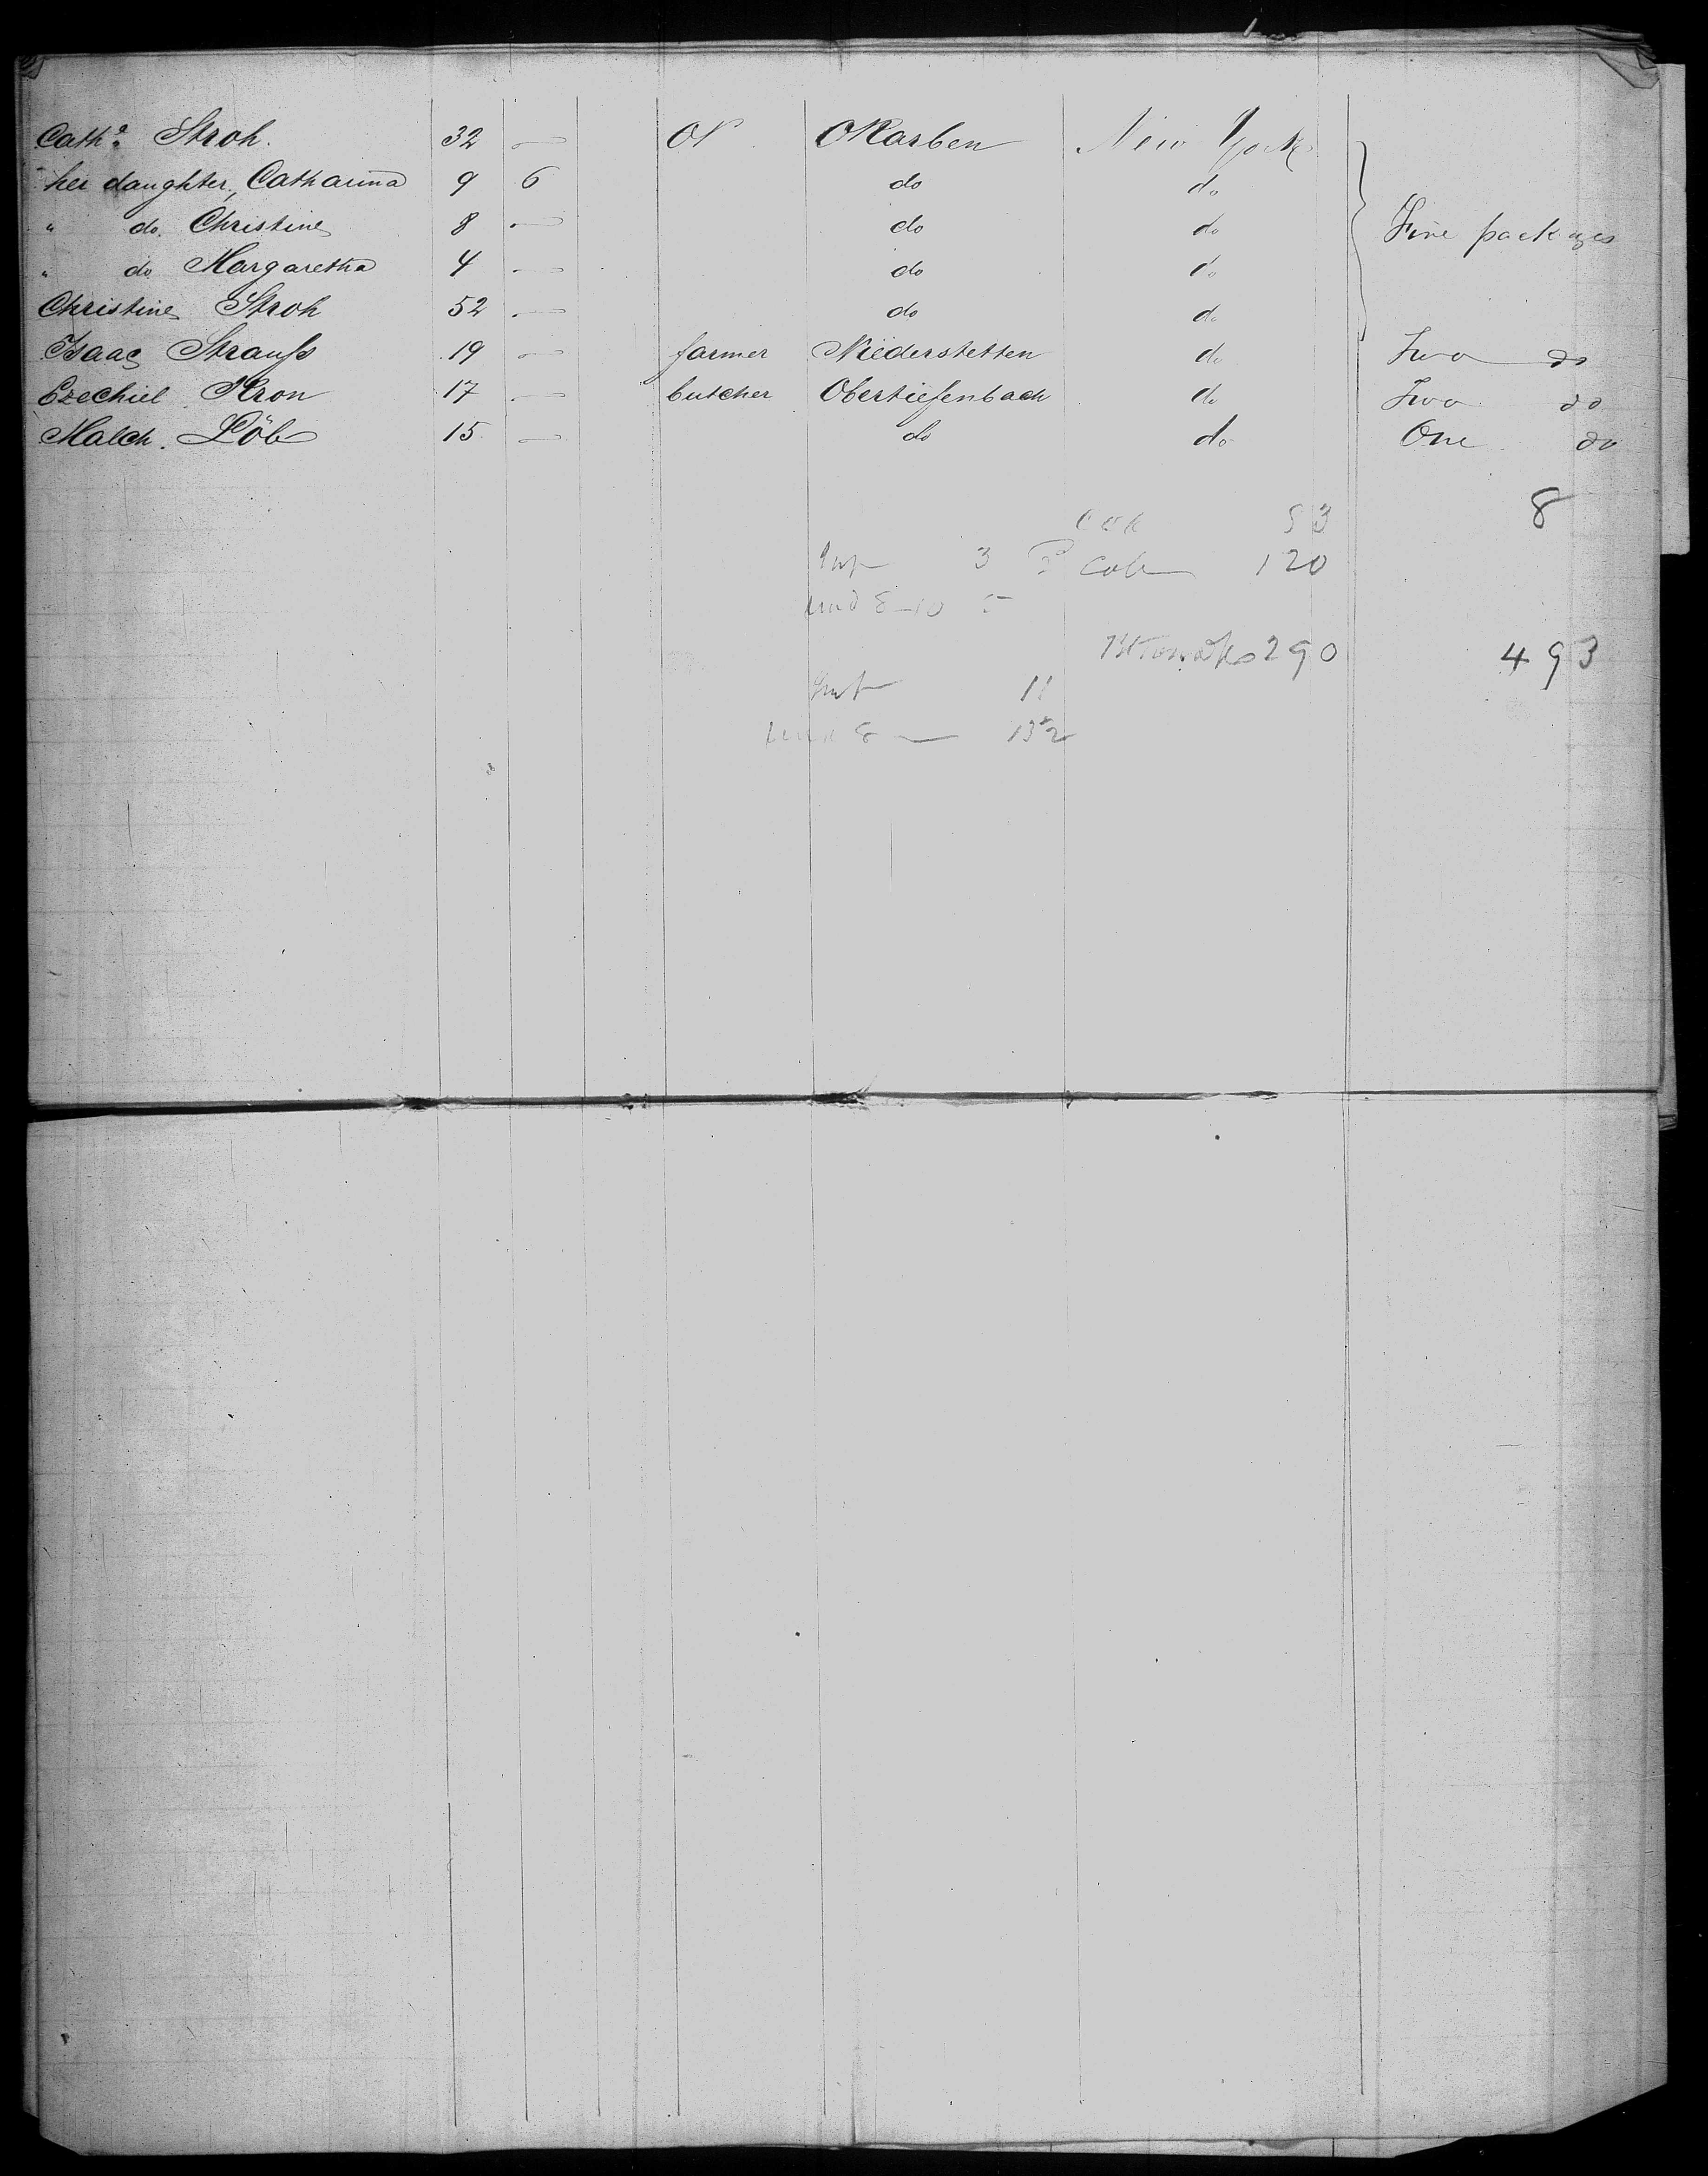 Cath.a Stroh. 32 — Okarben New York
her daughter, Catharina 9 6 do do
" do. Christine 8 — do do Five packages
" do Margaretha 4 — do do
Christine Stroh 52 — do do
Isaac Strauß 19 — farmer Niederstetten do Two do
Ezechiel Kron 17 — butcher Obertiefenbach do Two do
Malch. Löb 15 — do do One do
8
53
3 Cab 120
und 8–10
290 493
11
8 — 132